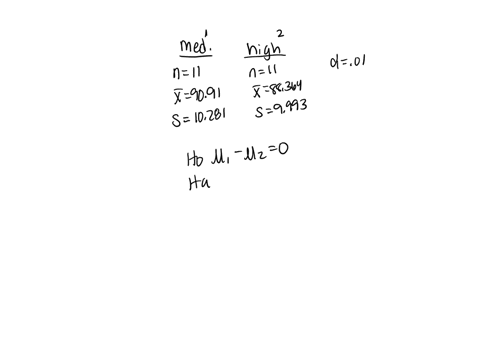 med.¹ high²
n=11 n=11 α=.01
x̄=90.91 x̄=88.364
s=10.281 s=9.993
Ho μ₁-μ₂=0
Ha